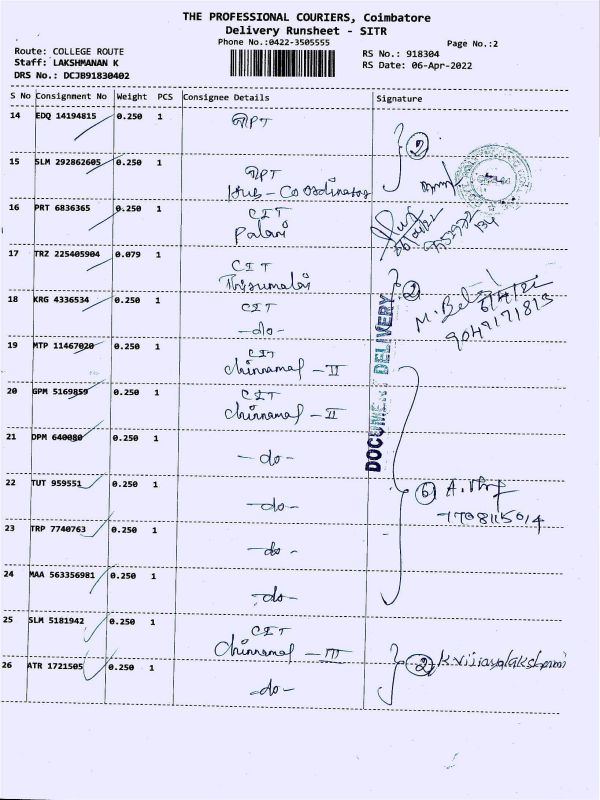 THE PROFESSIONAL COURIERS, Coimbatore
Delivery Runsheet - SITR
Phone No.:0422-3505555
Page No.:2
Route: COLLEGE ROUTE
Staff: LAKSHMANAN K
DRS No.: DCJB91830402
RS No.: 918304
RS Date: 06-Apr-2022
S No Consignment No Weight PCS Consignee Details Signature
14 EDQ 14194815 0.250 1
15 SLM 292862605 0.250 1
Hub - Coordinator
16 PRT 6836365 0.250 1 CIT
Palani
17 TRZ 225405904 0.079 1 CIT
Thirumalai
18 KRG 4336534 0.250 1 CIT
-do-
DOCUMENT DELIVERY
9047171813
19 MTP 11467020 0.250 1 CIT
Chinnamal - II
20 GPM 5169859 0.250 1 CIT
Chinnamal - II
21 DPM 640080 0.250 1
-do-
22 TUT 959551 0.250 1
-do-
6 A.
7708115014
23 TRP 7740763 0.250 1
-do-
24 MAA 563356981 0.250 1
-do-
25 SLM 5181942 0.250 1 CIT
Chinnamal - III
26 ATR 1721505 0.250 1
-do-
2 K.Vijayalakshmi